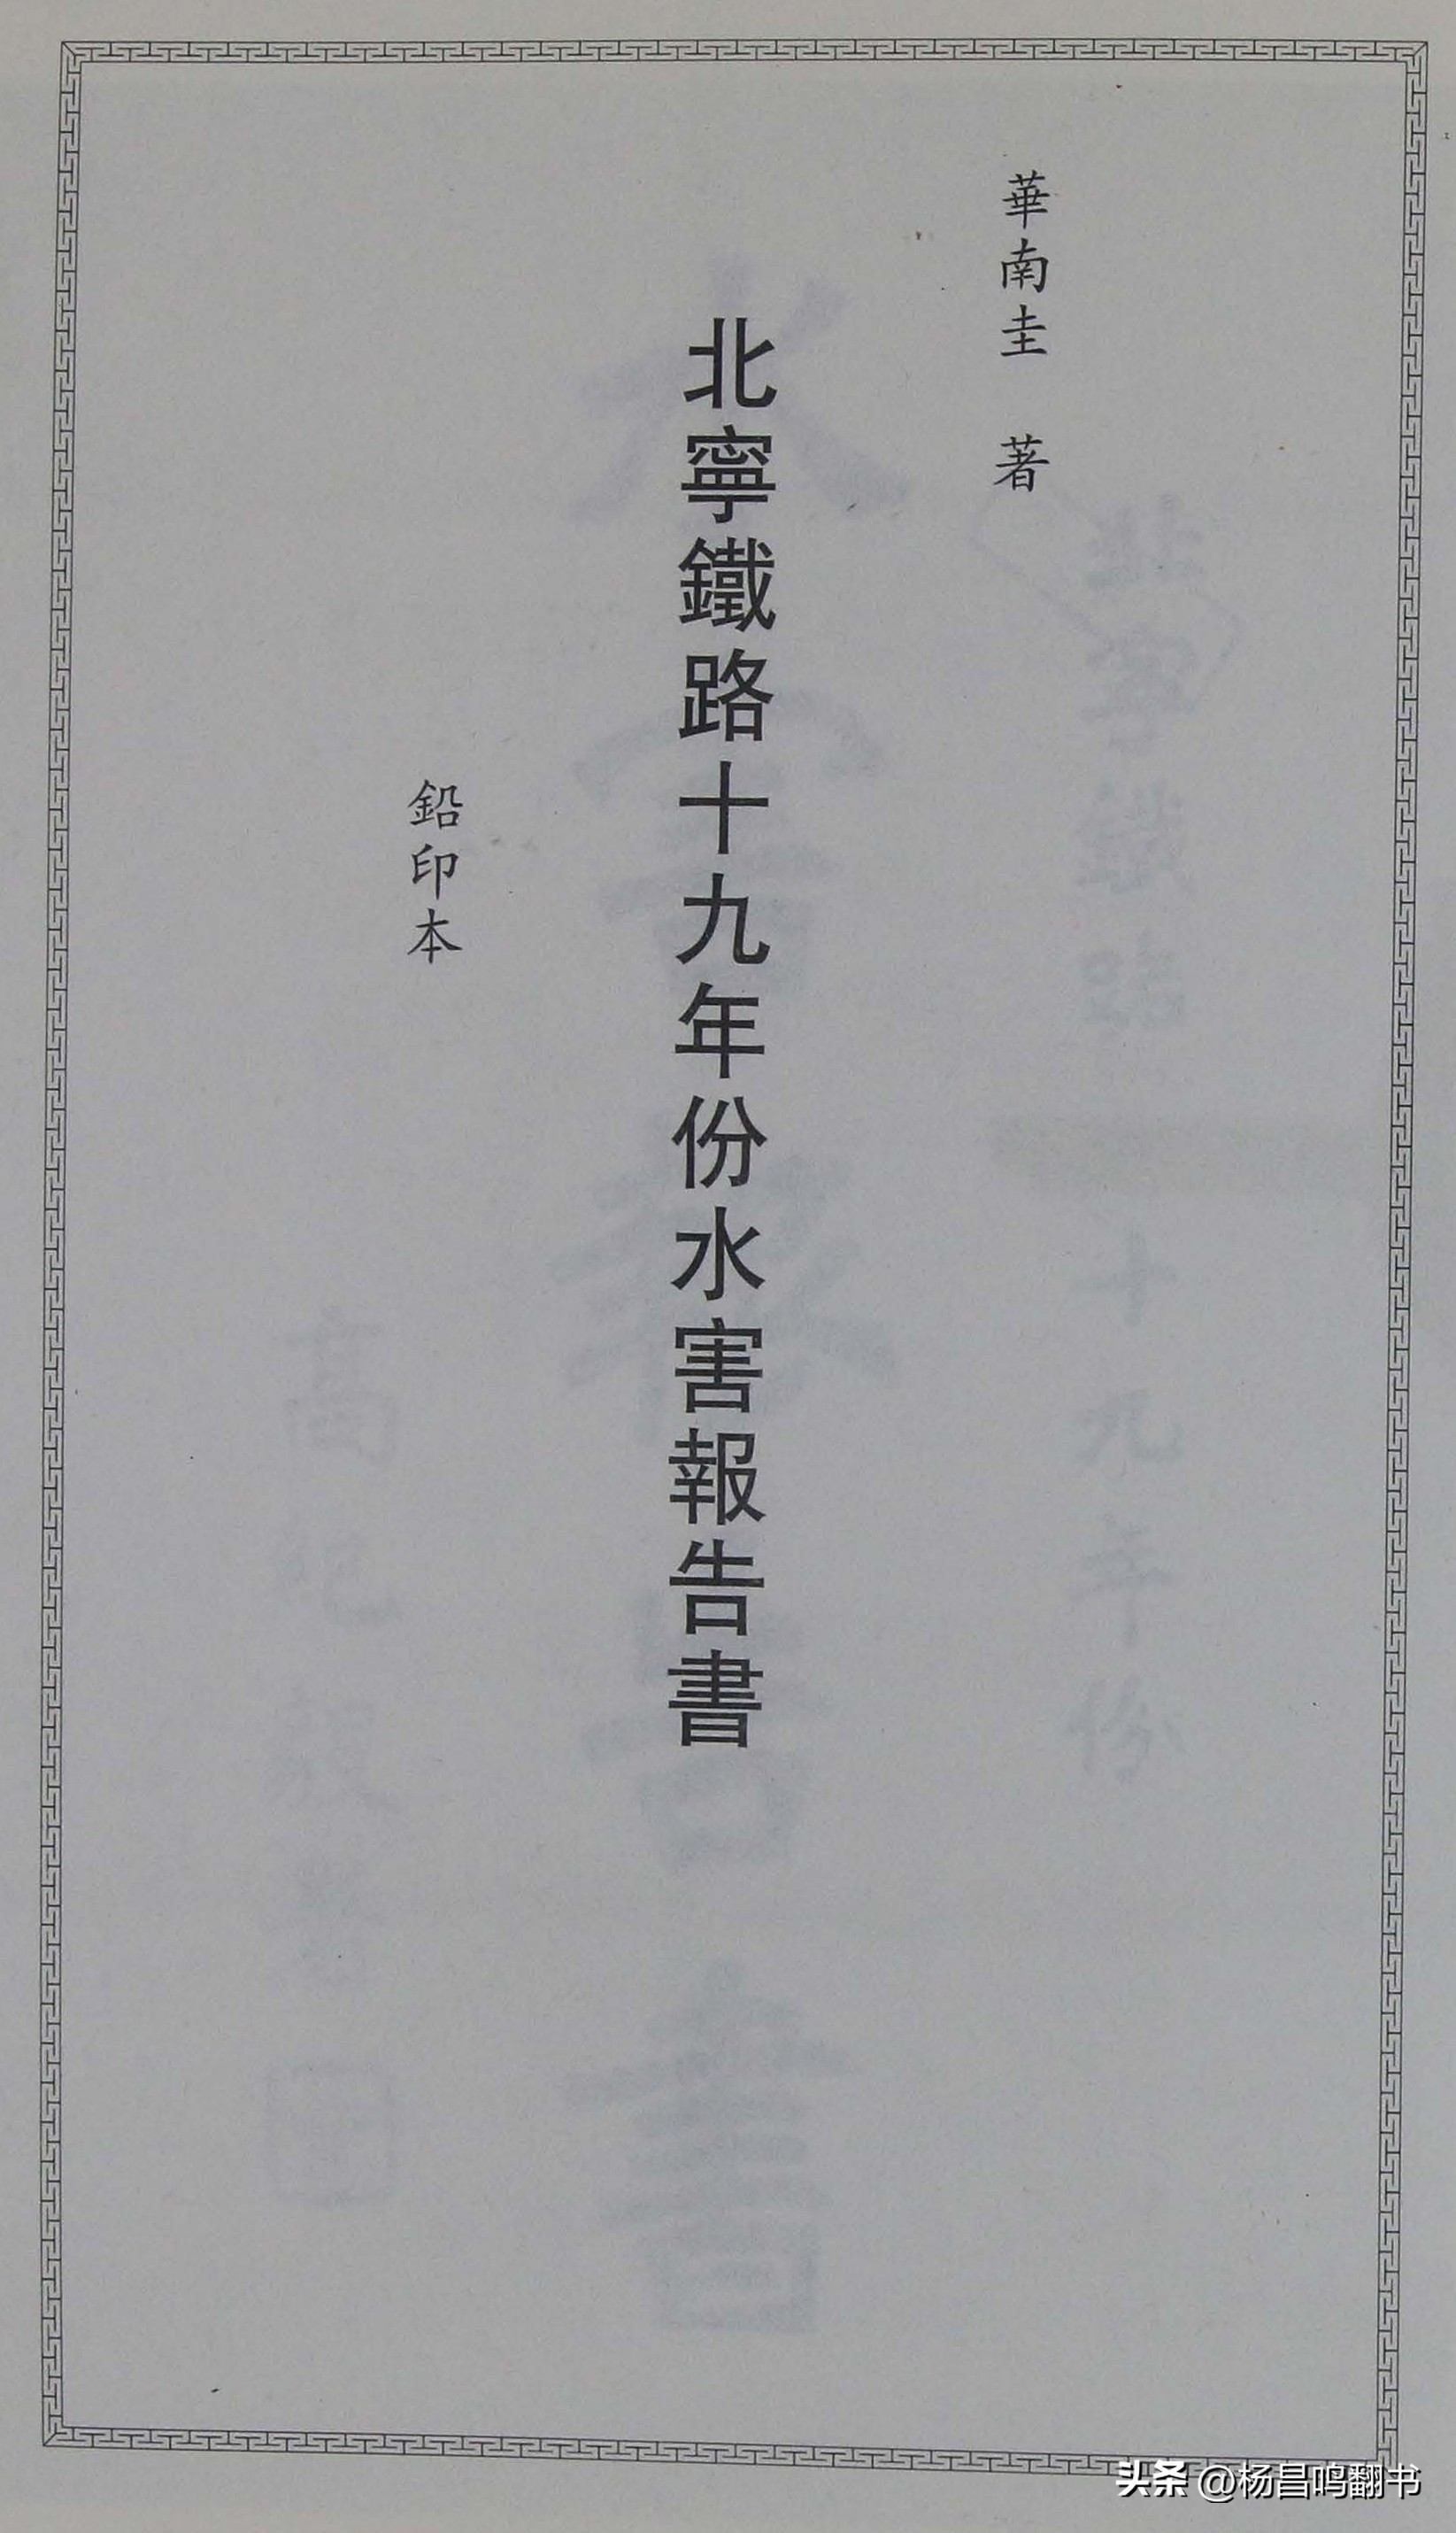 華南圭 著
北寧鐵路十九年份水害報告書
鉛印本
头条 @杨昌鸣翻书